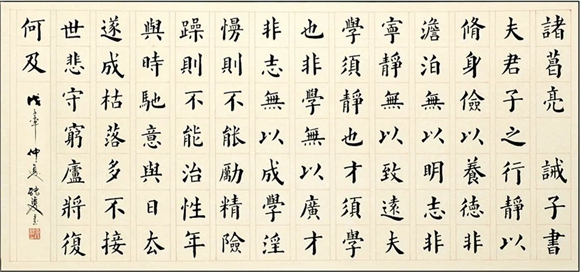 諸葛亮 誡子書
夫君子之行靜以
脩身儉以養德非
澹泊無以明志非
寧靜無以致遠夫
學須靜也才須學
也非學無以廣才
非志無以成學淫
慢則不能勵精險
躁則不能治性年
與時馳意與日厺
遂成枯落多不接
世悲守窮廬將復
何及
仲夏